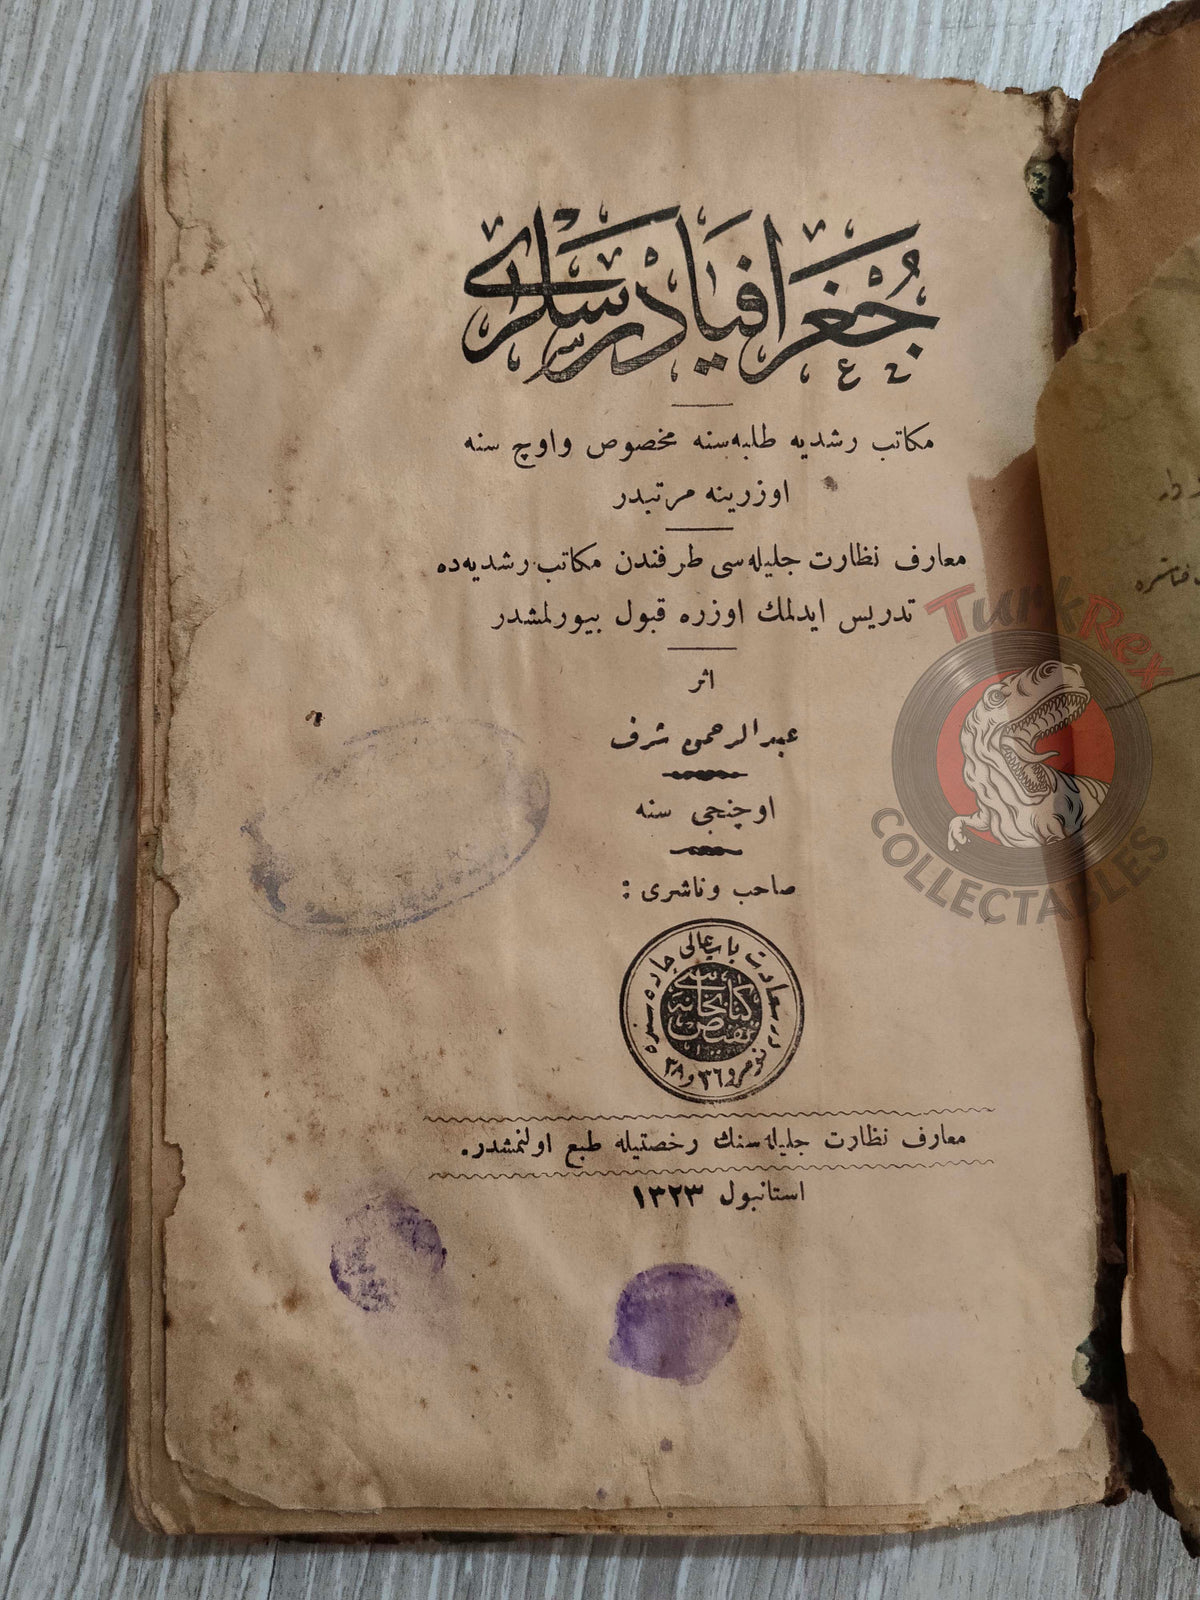 جغرافيا درسلرى
مكاتب رشديه طلبه‌سنه مخصوص واوچ سنه
اوزرينه مرتبدر
معارف نظارت جليله‌سى طرفندن مكاتب رشديه‌ده
تدريس ايدلمك اوزره قبول بيورلمشدر
اثر
عبدالرحمن شرف
اوچنجى سنه
صاحب وناشرى :
درسعادت باب عالى جاده‌سنده
نومرو ٣٦ و ٣٨
كتابخانه‌سى
معارف نظارت جليله‌سنك رخصتيله طبع اولنمشدر.
استانبول ١٣٢٣
TurkRex
COLLECTABLES